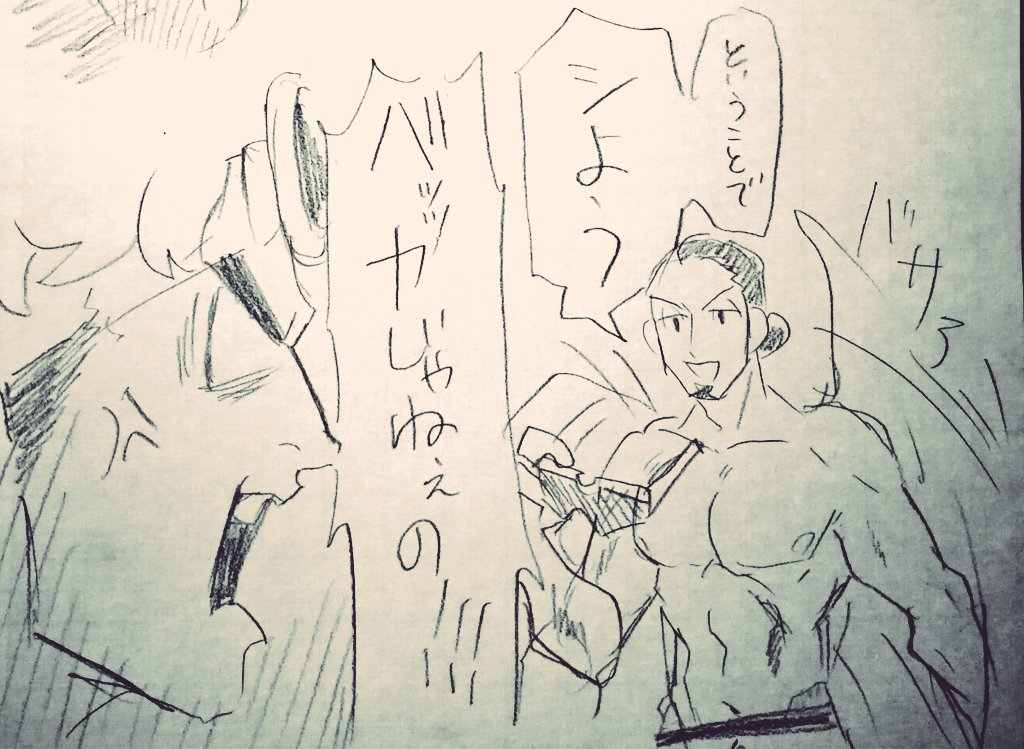 バサァ
ということで
シよっ
バッッカじゃねぇの!!!